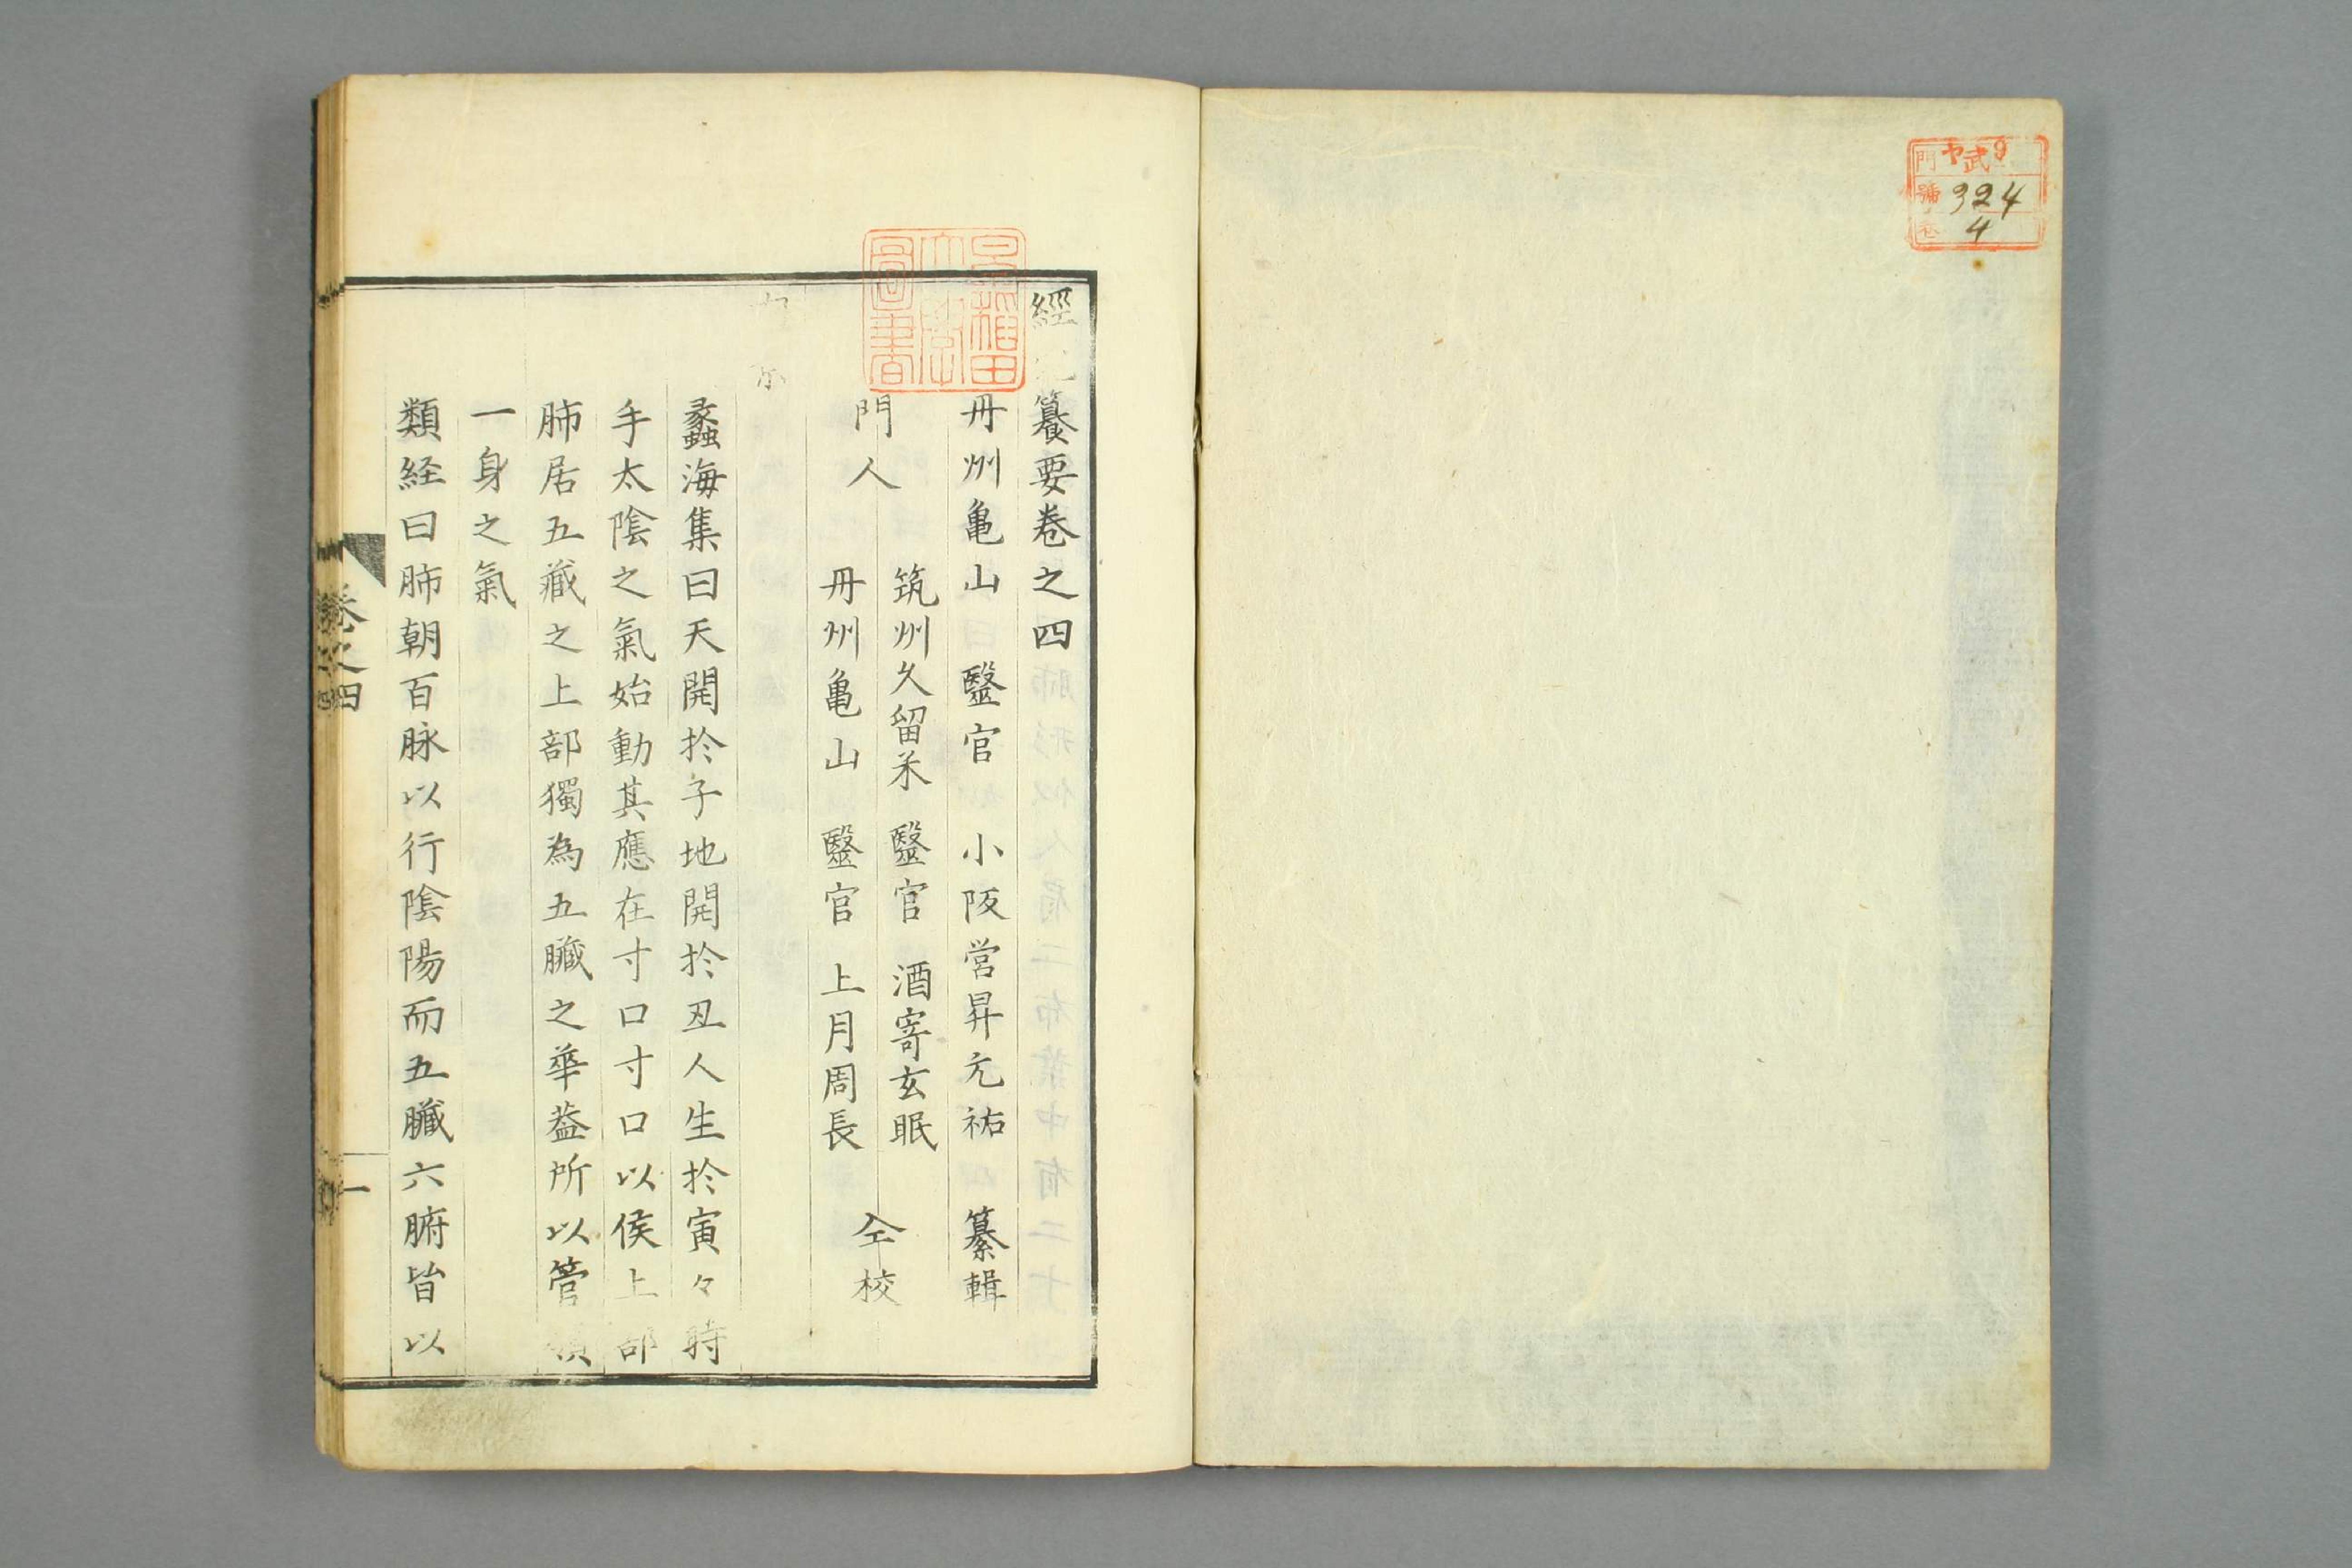 門 ヤ武9
號 324
卷 4
經 纂要卷之四
丹州亀山 毉官 小阪営昇元祐 纂輯
門人
筑州久留米 毉官 酒寄玄眠
丹州亀山 毉官 上月周長
仝校
蠡海集曰天開於子地開於丑人生於寅々時
手太陰之氣始動其應在寸口寸口以候上部
肺居五藏之上部獨為五臟之華葢所以管領
一身之氣
類経曰肺朝百脉以行陰陽而五臟六腑皆以
卷之四
一
早稲田大學圖書